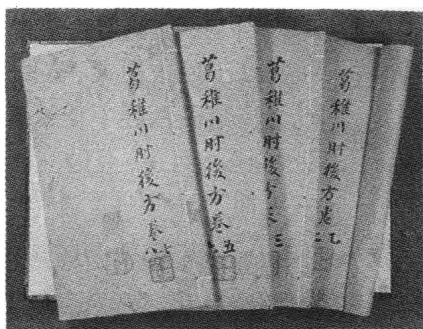 葛稚川肘後方卷乙二
葛稚川肘後方卷三
葛稚川肘後方卷五
葛稚川肘後方卷七八